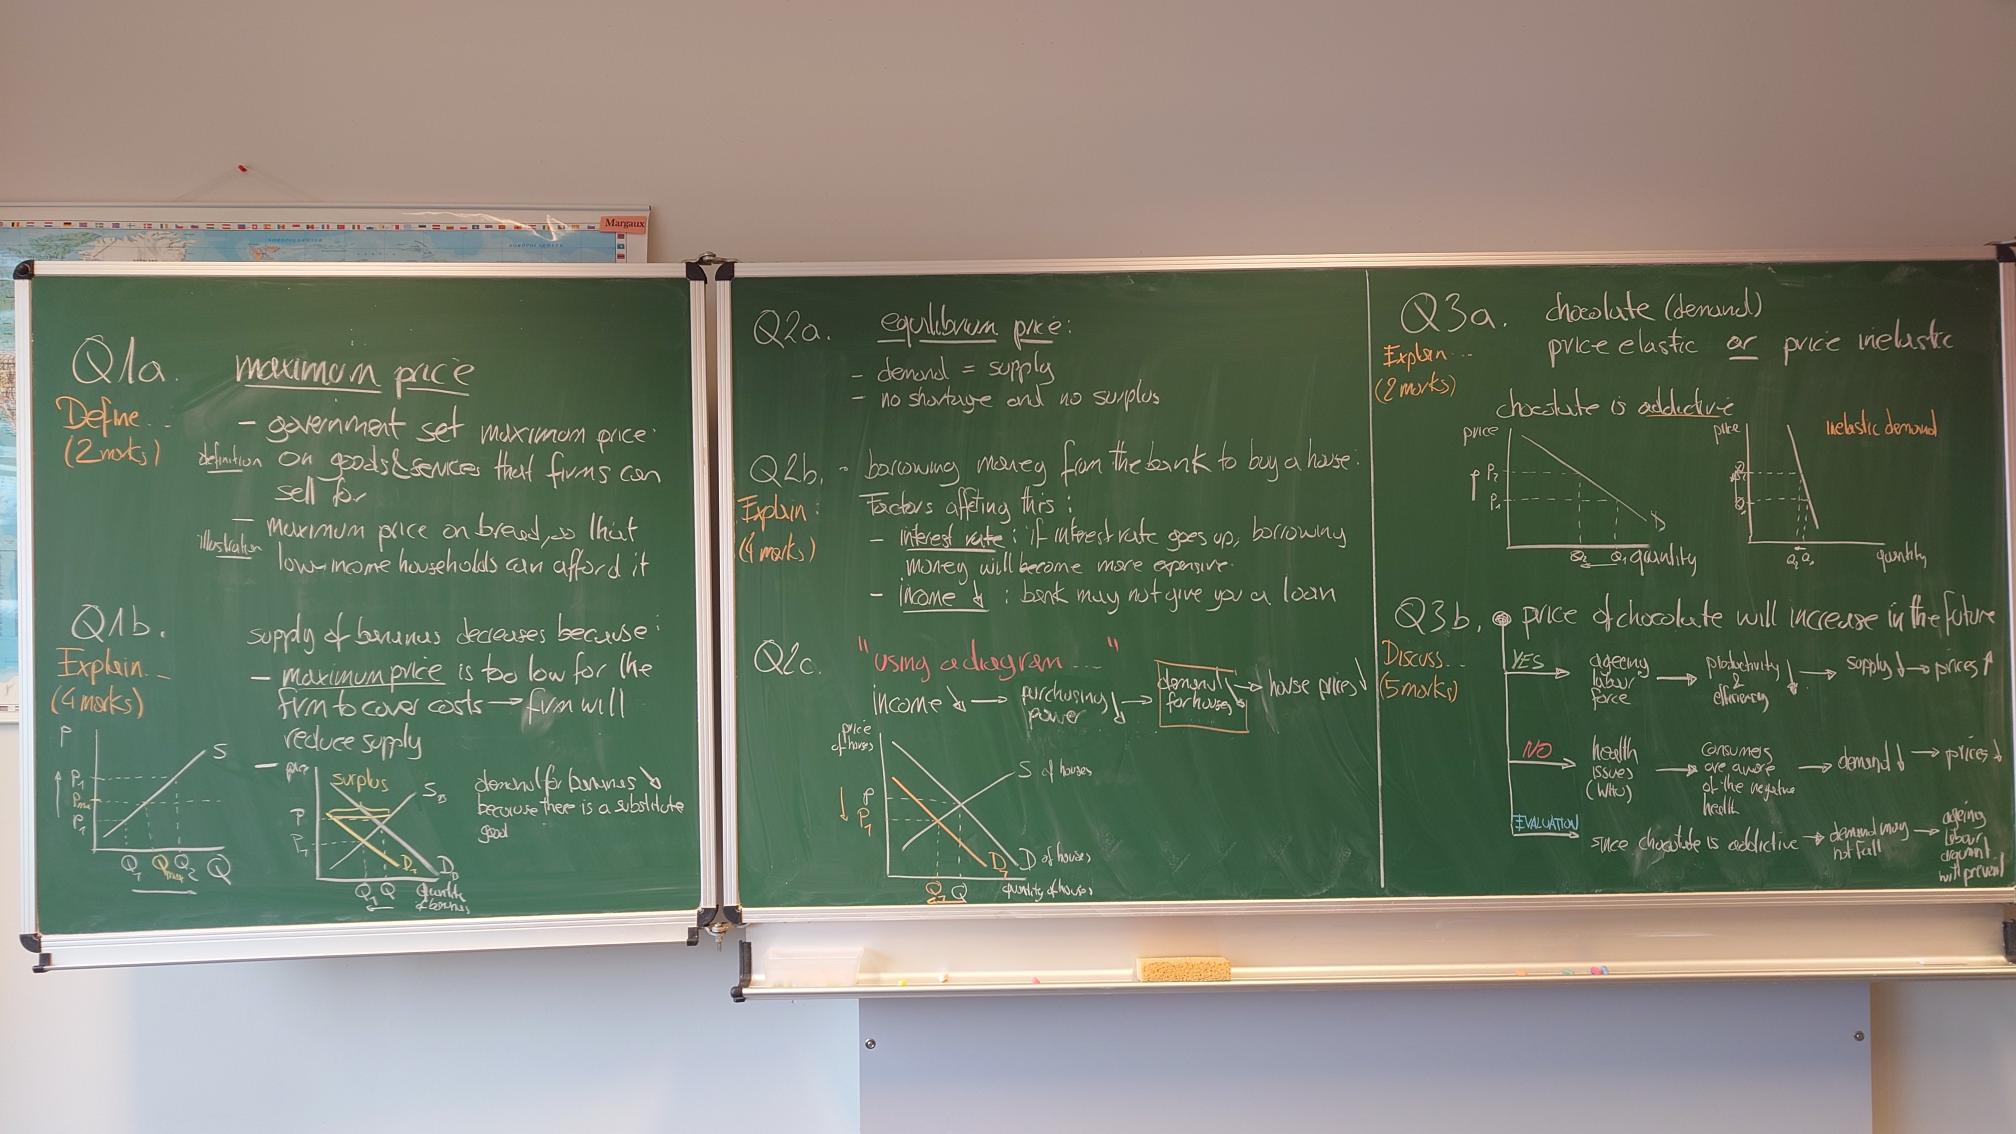 Margaux
Q1a. maximum price
Define...
(2 marks)
- government set maximum price
definition on goods & services that firms can
sell for
- maximum price on bread, so that
illustration low-income households can afford it
Q1b.
Explain...
(4 marks)
supply of bananas decreases because:
- maximum price is too low for the
firm to cover costs → firm will
reduce supply
P
S
P1
Pmax
P1
Q1 Qmax Q2 Q
- price
surplus
SB
P
P1
D1 DB
Q1 Q quantity
of bananas
demand for bananas ↘
because there is a substitute
good
Q2a. equilibrium price:
- demand = supply
- no shortage and no surplus
Q2b. - borrowing money from the bank to buy a house.
Explain:
(4 marks)
Factors affecting this:
- interest rate: if interest rate goes up, borrowing
money will become more expensive.
- income ↓ : bank may not give you a loan
Q2c. "using a diagram ...."
income ↓ → purchasing power ↓ → demand for houses ↓ → house prices ↓
price
of houses
S of houses
P
P1
D1 D of houses
Q1 Q quantity of houses
Q3a. chocolate (demand)
Explain...
(2 marks)
price elastic or price inelastic
chocolate is addictive
price
P2
P1
D
Q2 Q1 quantity
price
inelastic demand
P2
P1
Q2 Q1 quantity
Q3b. price of chocolate will increase in the future
Discuss...
(5 marks)
YES → ageing labour force → productivity & efficiency ↓ → supply ↓ → prices ↑
NO → health issues (WHO) → consumers are aware of the negative health → demand ↓ → prices ↓
EVALUATION → since chocolate is addictive → demand may not fall → ageing labour argument will prevail